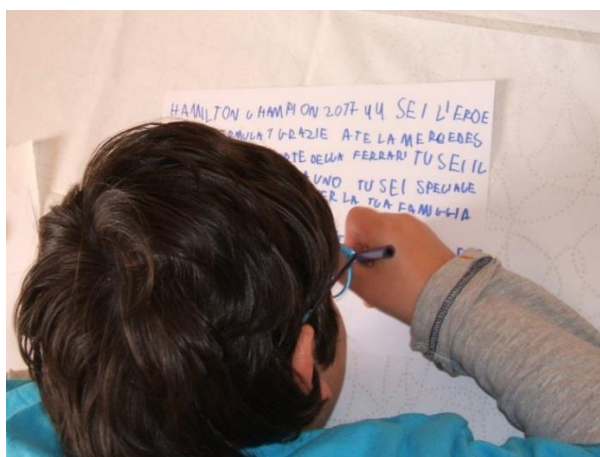 HAMILTON CHAMPION 2017 44 SEI L'EROE
GRAZIE A TE LA MERCEDES
DELLA FERRARI TU SEI IL
UNO TU SEI SPECIALE
LA TUA FAMIGLIA